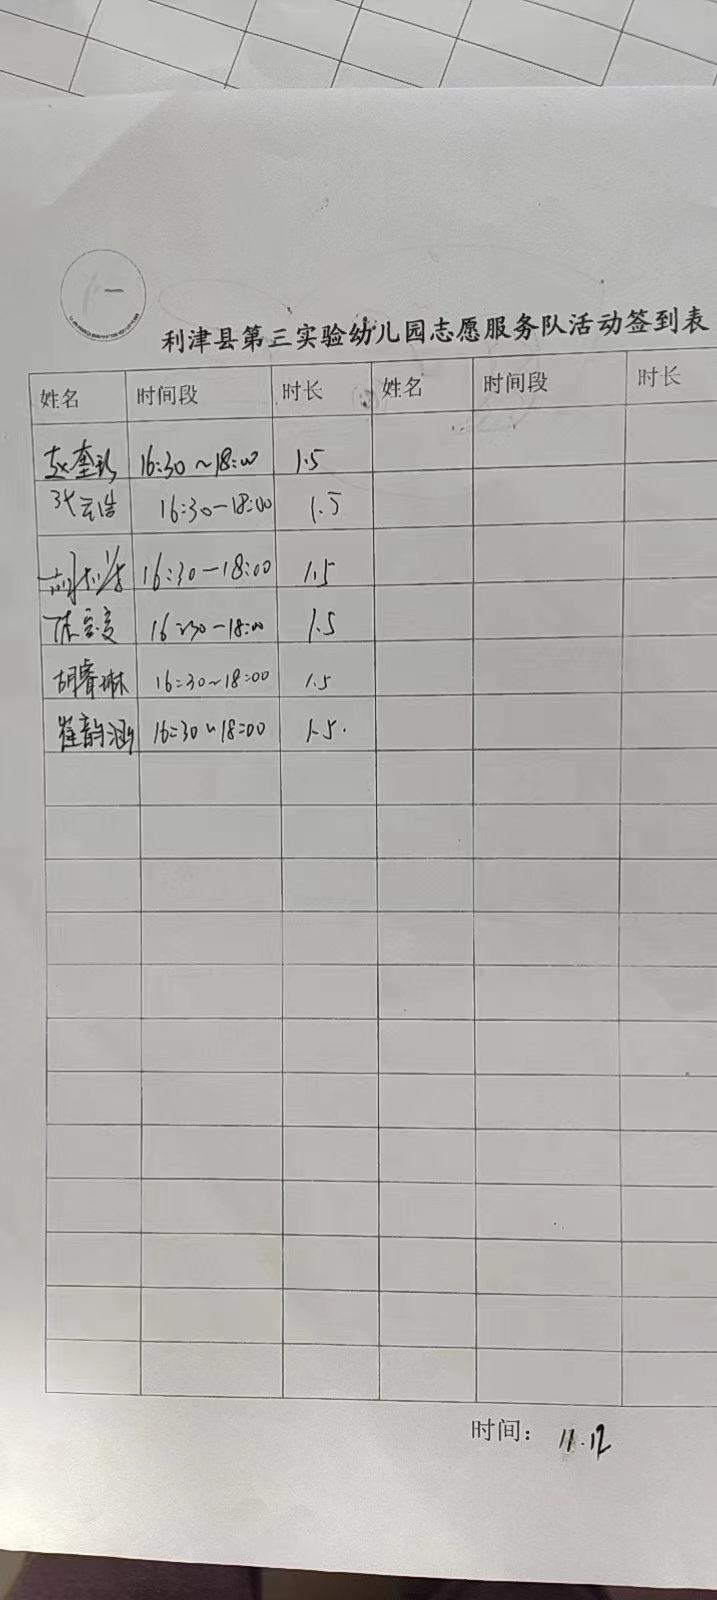 利津县第三实验幼儿园志愿服务队活动签到表
姓名 时间段 时长 姓名 时间段 时长
赵奎 16:30~18:00 1.5
张云浩 16:30-18:00 1.5
16:30-18:00 1.5
陈 16:30-18:00 1.5
胡睿琳 16:30~18:00 1.5
崔韵涵 16:30~18:00 1.5.
时间: 11.12